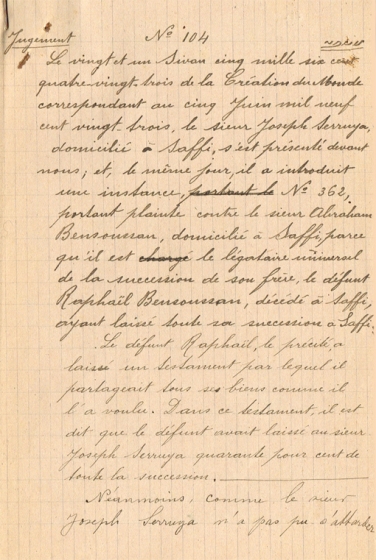 Jugement
No 104
Le vingt et un Sivan cinq mille six cent
quatre-vingt-trois de la Création du Monde
correspondant au cinq Juin mil neuf
cent vingt-trois, le sieur Joseph Serruya,
domicilié à Saffi, s'est présenté devant
nous; et, le même jour, il a introduit
une instance, portant le No 362,
portant plainte contre le sieur Abraham
Bensoussan, domicilié à Saffi, parce
qu'il est chargé le légataire universel
de la succession de son frère, le défunt
Raphaël Bensoussan, décédé à Saffi,
ayant laissé toute sa succession à Saffi.
Le défunt Raphaël, le précité a
laissé un testament par lequel il
partageait tous ses biens comme il
l'a voulu. Dans ce testament, il est
dit que le défunt avait laissé au sieur
Joseph Serruya quarante pour cent de
toute la succession.
Néanmoins, comme le sieur
Joseph Serruya n'a pas pu s'attarder